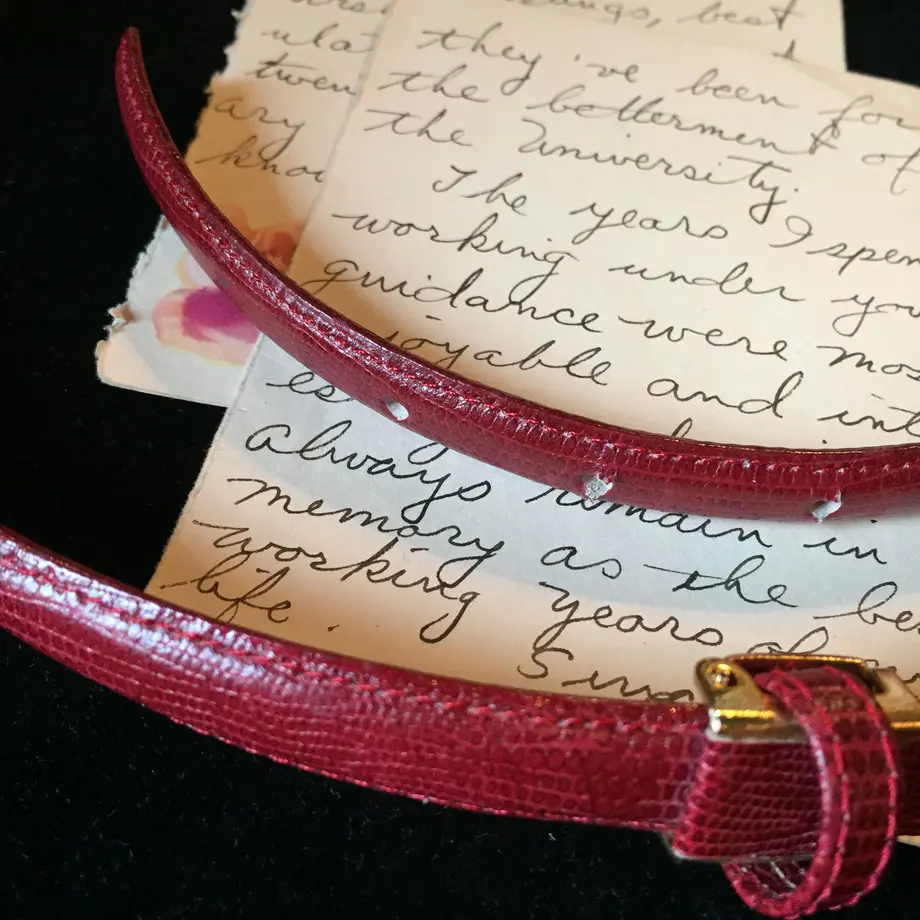 ula
twen
ary
know
best
they 've been for
the betterment of
the University.
The years I spen
working under you
guidance were mos
joyable and int
es
always remain in
memory as the be
working years of
life.
Sinc